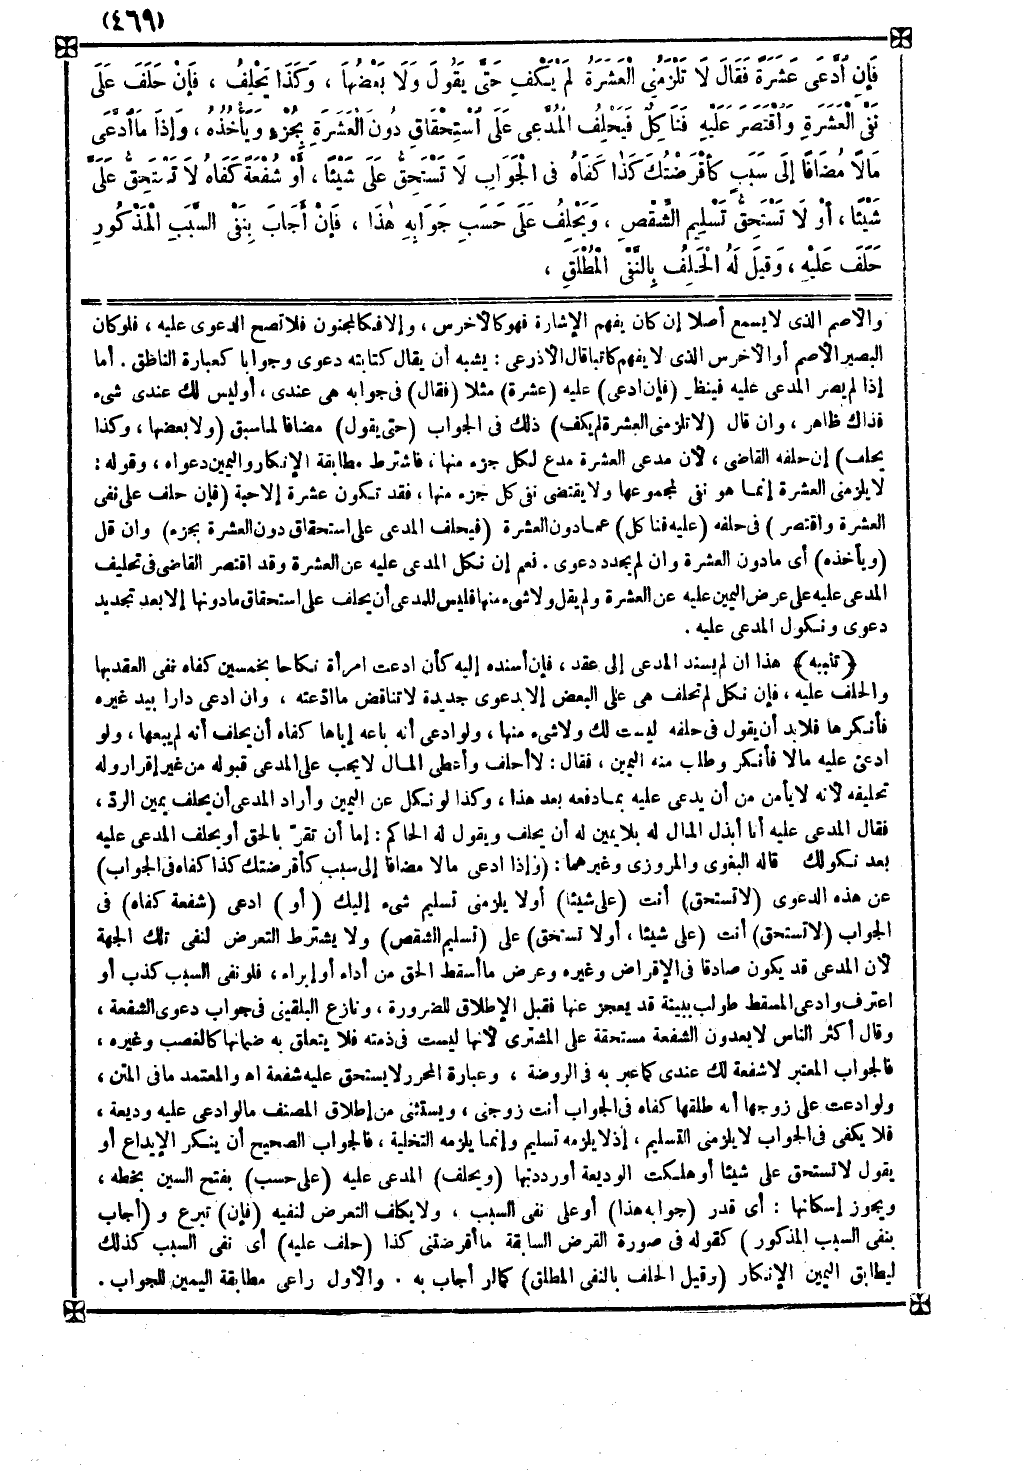 (٤٦٩)
فَإِنِ ٱدَّعَى عَشَرَةً فَقَالَ لَا تَلْزَمُنِى الْعَشَرَةُ لَمْ يَكْفِ حَتَّى يَقُولَ وَلَا بَعْضُهَا ، وَكَذَا يَحْلِفُ ، فَإِنْ حَلَفَ عَلَى
نَفْىِ الْعَشَرَةِ وَٱقْتَصَرَ عَلَيْهِ فَنَاكِلٌ فَيَحْلِفُ الْمُدَّعِى عَلَى ٱسْتِحْقَاقِ دُونَ الْعَشَرَةِ بِجُزْءٍ وَيَأْخُذُهُ ، وَإِذَا مَا ٱدَّعَى
مَالًا مُضَافًا إِلَى سَبَبٍ كَأَقْرَضْتُكَ كَذَا كَفَاهُ فِى الْجَوَابِ لَا تَسْتَحِقُّ عَلَىَّ شَيْئًا ، أَوْ شُفْعَةً كَفَاهُ لَا تَسْتَحِقُّ عَلَىَّ
شَيْئًا ، أَوْ لَا تَسْتَحِقُّ تَسْلِيمَ الشِّقْصِ ، وَيَحْلِفُ عَلَى حَسَبِ جَوَابِهِ هٰذَا ، فَإِنْ أَجَابَ بِنَفْىِ السَّبَبِ الْمَذْكُورِ
حَلَفَ عَلَيْهِ ، وَقِيلَ لَهُ الْحَلِفُ بِالنَّفْىِ الْمُطْلَقِ ،
والأصم الذى لايسمع أصلا إن كان يفهم الإشارة فهو كالأخرس ، وإلا فكالمجنون فلا تصح الدعوى عليه ، فلو كان
البصير الأصم أو الأخرس الذى لا يفهم كاتبا قال الأذرعى : يشبه أن يقال كتابته دعوى وجوابا كعبارة الناطق . أما
إذا لم يصر المدعى عليه فينظر (فإن ادعى) عليه (عشرة) مثلا (فقال) فى جوابه هى عندى ، أو ليس لك عندى شىء
فذاك ظاهر ، وان قال (لا تلزمنى العشرة لم يكف) ذلك فى الجواب (حتى يقول) مضافا لما سبق (ولا بعضها ، وكذا
يحلف) إن حلفه القاضى ، لأن مدعى العشرة مدع لكل جزء منها ، فاشترط مطابقة الإنكار واليمين دعواه ، وقوله :
لا يلزمنى العشرة إنما هو نفى لمجموعها ولا يقتضى نفى كل جزء منها ، فقد تكون عشرة إلا حبة (فإن حلف على نفى
العشرة واقتصر ) فى حلفه (عليه فناكل) عما دون العشرة (فيحلف المدعى على استحقاق دون العشرة بجزء) وان قل
(ويأخذه) أى مادون العشرة وان لم يجدد دعوى . نعم إن نكل المدعى عليه عن العشرة وقد اقتصر القاضى فى تحليف
المدعى عليه على عرض اليمين عليه عن العشرة ولم يقل ولا شىء منها فليس للمدعى أن يحلف على استحقاق مادونها إلا بعد تجديد
دعوى ونكول المدعى عليه .
﴿ تنبيه ﴾ هذا ان لم يسند المدعى إلى عقد ، فإن أسنده إليه كأن ادعت امرأة نكاحا بخمسين كفاه نفى العقد بها
والحلف عليه ، فإن نكل لم تحلف هى على البعض إلا بدعوى جديدة لا تناقض ما ادّعته ، وان ادعى دارا بيد غيره
فأنكرها فلابد أن يقول فى حلفه ليست لك ولا شىء منها ، ولو ادعى أنه باعه إياها كفاه أن يحلف أنه لم يبعها ، ولو
ادعى عليه مالا فأنكر وطلب منه اليمين ، فقال : لا أحلف وأعطى المال لا يجب على المدعى قبوله من غير إقرار وله
تحليفه لأنه لا يأمن من أن يدعى عليه بما دفعه بعد هذا ، وكذا لو نكل عن اليمين وأراد المدعى أن يحلف يمين الردّ ،
فقال المدعى عليه أنا أبذل المال له بلا يمين له أن يحلف ويقول له الحاكم : إما أن تقرّ بالحق أو يحلف المدعى عليه
بعد نكولك قاله البغوى والمروزى وغيرهما : (وإذا ادعى مالا مضافا إلى سبب كأقرضتك كذا كفاه فى الجواب)
عن هذه الدعوى (لا تستحق) أنت (على شيئا) أو لا يلزمنى تسليم شىء إليك (أو) ادعى (شفعة كفاه) فى
الجواب (لا تستحق) أنت (على شيئا ، أو لا تستحق) على (تسليم الشقص) ولا يشترط التعرض لنفى تلك الجهة
لأن المدعى قد يكون صادقا فى الإقراض وغيره وعرض ما أسقط الحق من أداء أو إبراء ، فلو نفى السبب كذب أو
اعترف وادعى المسقط طولب ببينة قد يعجز عنها فقبل الإطلاق للضرورة ، ونازع البلقينى فى جواب دعوى الشفعة ،
وقال أكثر الناس لا يعدون الشفعة مستحقة على المشترى لأنها ليست فى ذمته فلا يتعلق به ضمانها كالغصب وغيره ،
فالجواب المعتبر لا شفعة لك عندى كما عبر به فى الروضة ، وعبارة المحرر لا يستحق عليه شفعة اه والمعتمد ما فى المتن ،
ولو ادعت على زوجها أنه طلقها كفاه فى الجواب أنت زوجتى ، ويستثنى من إطلاق المصنف ما لو ادعى عليه وديعة ،
فلا يكفى فى الجواب لا يلزمنى التسليم ، إذ لا يلزمه تسليم وإنما يلزمه التخلية ، فالجواب الصحيح أن ينكر الإيداع أو
يقول لا تستحق على شيئا أو هلكت الوديعة أو رددتها (ويحلف) المدعى عليه (على حسب) بفتح السين بخطه ،
ويجوز إسكانها : أى قدر (جوابه هذا) أو على نفى السبب ، ولا يكلف التعرض لنفيه (فإن) تبرع و (أجاب
بنفى السبب المذكور ) كقوله فى صورة القرض السابقة ما أقرضتنى كذا (حلف عليه) أى نفى السبب كذلك
ليطابق اليمين الإنكار (وقيل الحلف بالنفى المطلق) كما لو أجاب به . والأول راعى مطابقة اليمين للجواب .